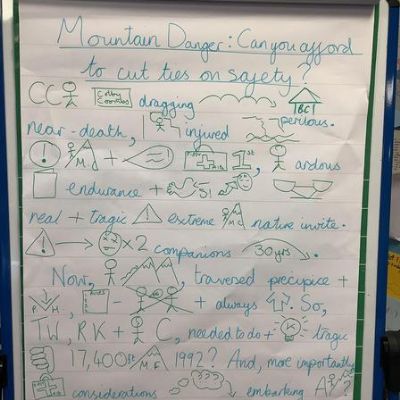 Mountain Danger: Can you afford
to cut ties on safety?
CC Colby Coombs dragging BC
near-death, injured perilous.
! M + 1st, ardous
endurance +
real + tragic ! extreme native invite.
! x 2 companions 30yrs.
Now, , traversed precipice +
P H , - + always . So,
TW, RK + C, needed to do + tragic
17,400ft M.F. 1992? And, more importantly
considerations embarking A ?